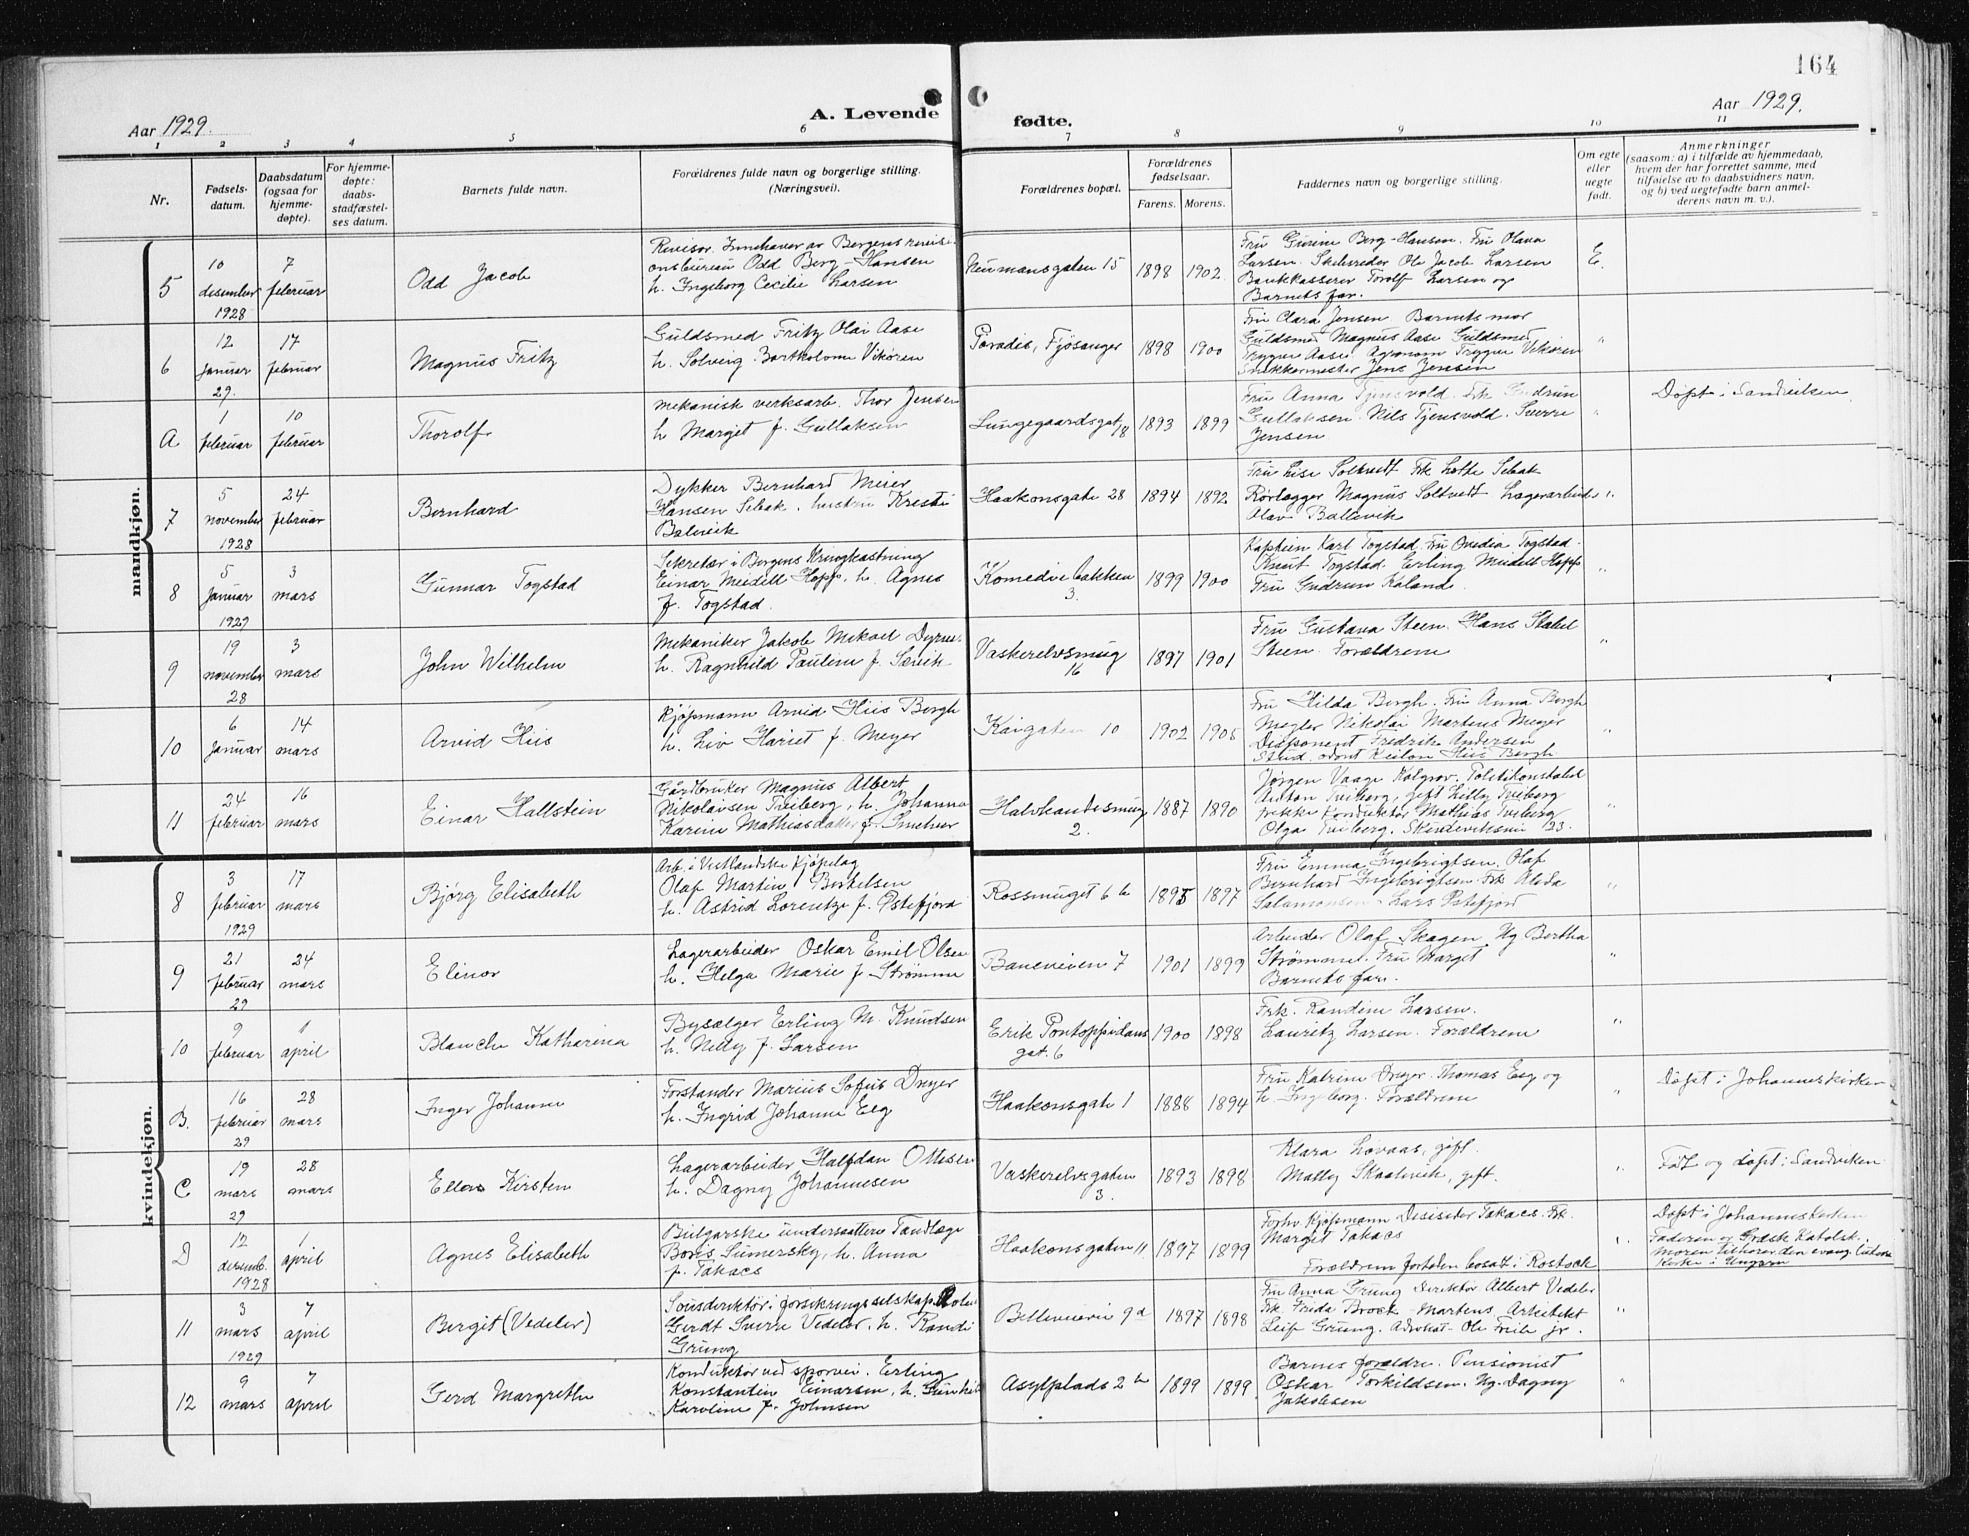 164
Aar 1929.
A. Levende
fødte.
Aar 1929.
1 2 3 4 5 6 7 8 9 10 11
Nr.
Fødsels-
datum.
Daabsdatum
(ogsaa for
hjemme-
døpte).
For hjemme-
døpte:
daabs-
stadfæstel-
ses datum.
Barnets fulde navn.
Forældrenes fulde navn og borgerlige stilling.
(Næringsvei).
Forældrenes bopæl.
Forældrenes
fødselsaar.
Farens. Morens.
Faddernes navn og borgerlige stilling.
Om egte
eller
uegte
født.
Anmerkninger
(saasom: a) i tilfælde av hjemmedaab,
hvem der har forrettet samme, med
tilføielse av to daabsvidners navn,
og b) ved uegtefødte barn anmel-
derens navn m. v.).
mandkjøn.
5
10
desember
1928
7
februar
Odd Jacob
Revisor. Innehaver av Bergens revisi-
onsbureau Odd Berg-Hansen
h. Ingeborg Cecilie Larsen
Neumansgaten 15
1898 1902
Fru Gusine Berg-Hansen. Fru Olava
Larsen. Skibsreder Ole Jacob Larsen
Bankkasserer Torolf Larsen og
Barnets far.
E.
6
12
januar
29.
17
februar
Magnus Fritz
Guldsmed Fritz Olai Aase
h. Solveig Bartholome Vikøren
Paradis, Fjøsanger
1898 1900
Fru Clara Jensen Barnets mor
Guldsmed Magnus Aase Guldsmed
Trygve Aase. Agronom Trygve Vikøren
Snikkermester Jens Jensen
"
A
1
februar
10
februar
Thorolf
Mekanisk verksarb. Thor Jensen
h Margit f. Gullaksen
Lungegaardsgat 18
1893 1899
Fru Anna Tjensvold. Frk Gudrun
Gullaksen. Nils Tjensvold. Sverre
Jensen
"
Døpt i Sandviken
7
5
november
1928
24
februar
Bernhard
Dykker Bernhard Meier
Hansen Sebak, hustru Kristi
Balevik
Haakonsgate 28
1894 1892
Fru Lise Soltvedt Frk Lotte Sebak
Rørlægger Magnus Soltvedt Lagerarbeider
Olav Ballevik
"
8
5
Januar
1929
3
mars
Gunnar Togstad
Sekretær i Bergens Kringkastning
Einar Meidell Hopp, h. Agnes
f. Togstad.
Komediebakken
3.
1899 1900
Kaptein Karl Togstad. Fru Ovedia Togstad.
Knut Togstad. Erling Meidell Hopp
Fru Gudrun Kaland.
"
9
19
november
28
3
mars
John Wilhelm
Mekaniker Jakob Mikael
h. Ragnhild Pauline f.
Vaskerelvsmug
16
1897 1901
Fru Gustava Steen. Hans
Steen. Forældrene
"
10
6
Januar
14
mars
Arvid Hiis
Kjøpmann Arvid Hiis Bergh
h. Liv Hariet f. Meyer
Kaigaten 10
1902
Fru Hilda Bergh. Fru Anna Bergh
Megler Nikolai Martens Meyer
Disponent Fredrik Andersen
Stud. odont Hiis Bergh
"
11
24
februar
16
mars
Einar Hallstein
Gårdbruker Magnus Albert
Nikolaisen Tveiberg, h. Johanna
Karine Mathiasdatter f.
2.
1887 1890
Jørgen Vaage Kalgrav. Politikonstabel
Anton Tveiberg, gift Lilly Tveiberg
Trikkekonduktør Mathias Tveiberg
Olga Tveiberg. 23.
"
kvindekjøn.
8
3
februar
1929
17
mars
Bjørg Elisabeth
Arb. i Vestlandske Kjøpelag
Olaf Martin Berkelsen
h. Astrid Lorentze f. Østefjord
Rossmuget 6 b
1895 1897
Fru Emma Ingebrigtsen. Olaf
Bernhard Ingebrigtsen. Frk Alida
Salamonsen. Lars Østefjord
"
9
21
februar
29
24
mars
Elinor
Lagerarbeider Oskar Emil Olsen
h. Helga Marie f. Strømme
Baneveien 7
1901 1899
Arbeider Olaf Skagen. Ug. Bertha
Strømme. Fru Margit
Barnets far.
"
10
9
februar
1
april
Blanche Katharina
Bysælger Erling M. Knudsen
h. Nelly f. Larsen
Erik Pontoppidans
gat. 6
1900 1898
Frk. Randine Larsen.
Lauritz Larsen. Forældrene
"
B.
16
februar
29
28
mars
Inger Johanne
Forstander Marius Sofus Dreyer
h. Ingrid Johanne Eeg
Haakonsgate 1
1888 1894
Fru Katrine Dreyer. Thomas Eeg og
h. Ingeborg. Forældrene
"
Døpt i Johanneskirken
C
19
mars
29
28
mars
Ellen Kirsten
Lagerarbeider Halfdan Ottesen
h. Dagny Johannesen
Vaskerelvsgaten
3.
1893 1898
Klara Lovaas, gift.
Mally Skaalevik, gift.
"
Født og døpt i Sandviken
D
12
desemb.
1928
1
april
Agnes Elisabeth
Bulgarske undersaatter Tandlæge
Boris Sumersky, h. Anna
f. Takacs
Haakonsgaten 11
1897 1899
Forhv Kjøpmann Desiseder Takacs. Frk.
Margit Takacs
Forældrene fortiden bosatt i Rostock
"
Døpt i Johanneskirken
Faderen er Græsk Katolsk.
Moren tilhører den evang. lutherske
Kirke i Ungarn
11
3
mars
1929
7
april
Bergit (Vedeler)
Sousdirektør i forsikringsselskap
Gerdt Sverre Vedeler, h. Randi
Grung
Belleveien 9d
1897 1898
Fru Anna Grung Direktør Albert Vedeler
Frk. Frida Brock-Martens. Arkitekt
Leif Grung. Advokat Ole Friele jr.
"
12
9
mars
7
april
Gerd Margrethe
Konduktør ved sporvei. Erling
Konstantin Einarsen, h. Gunhild
Karoline f. Johnsen
Asylplads 2 b
1899 1899
Barnes forældre. Pensionist
Oskar Torkildsen. Ug. Dagny
Jakobsen
"